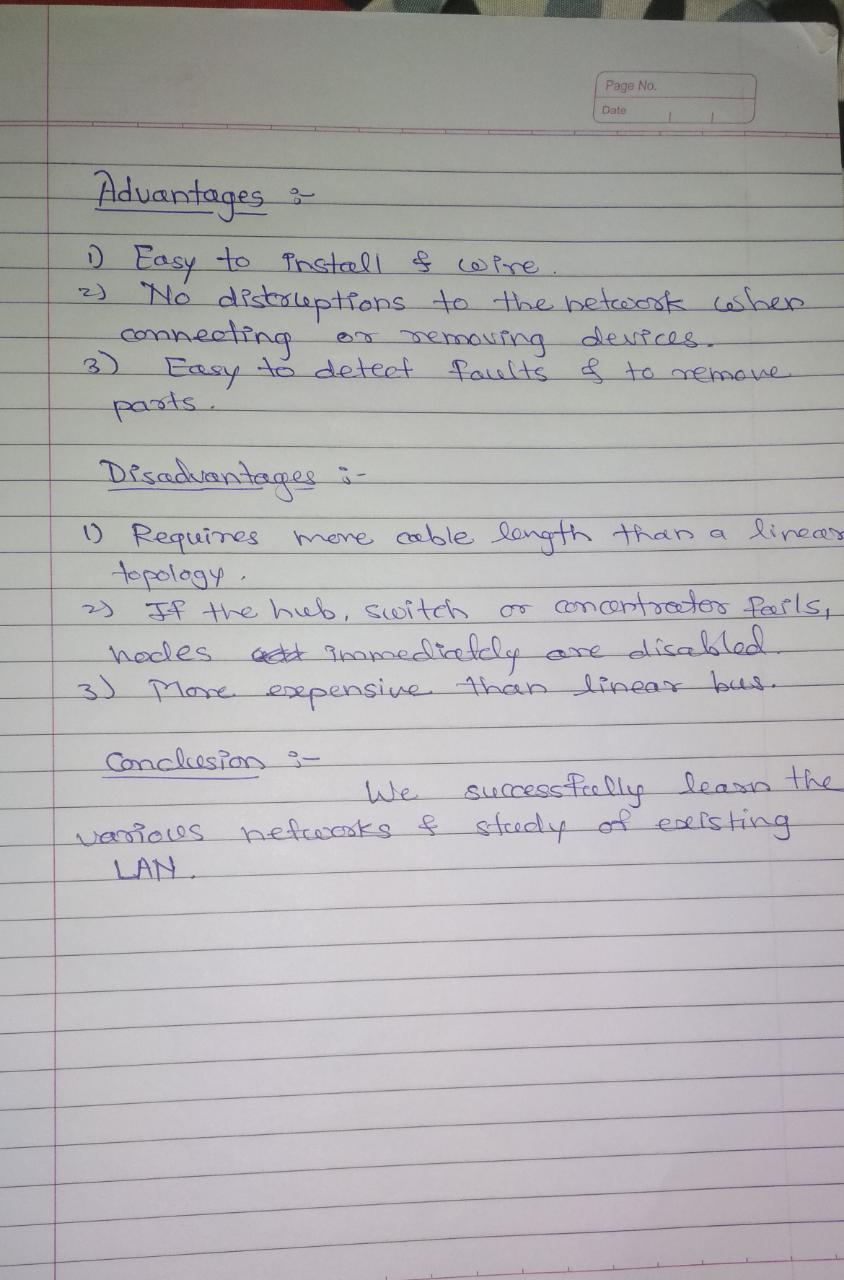 Page No.
Date
Advantages :-
1) Easy to install & wire.
2) No distruptions to the network when
connecting or removing devices.
3) Easy to detect faults & to remove
parts.
Disadvantages :-
1) Requires more cable length than a linear
topology.
2) If the hub, switch or concentrator fails,
nodes immediately are disabled.
3) More expensive than linear bus.
Conclusion :-
We successfully learn the
various networks & study of existing
LAN.